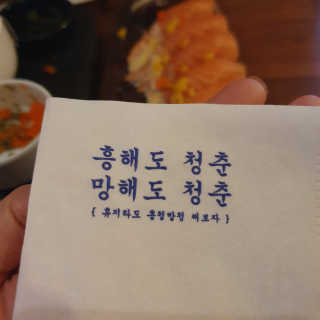 흥해도 청춘
망해도 청춘
{ 유지타도 흥청망청 써보자 }